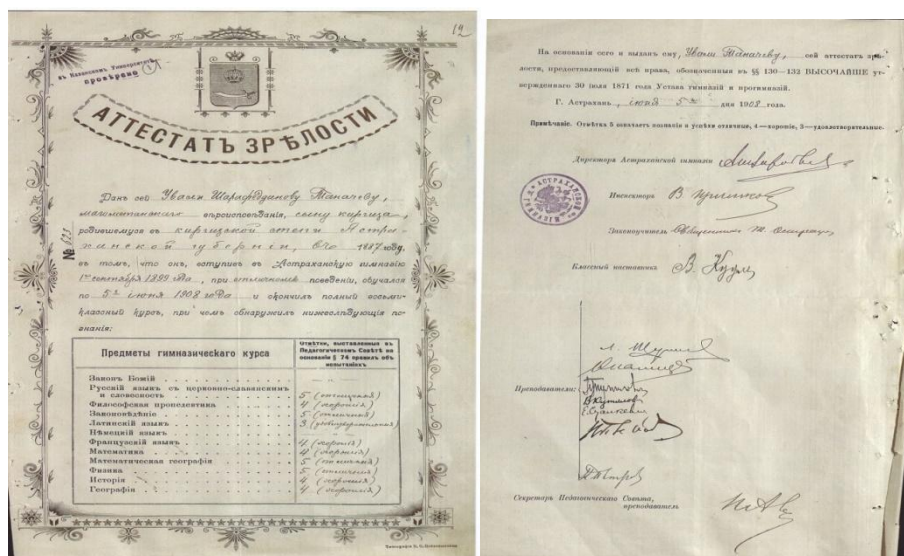 12
въ Казанскомъ Университетѣ
провѣрено
АТТЕСТАТЪ ЗРѢЛОСТИ
Данъ сей Ували Шарафединову Таначеву,
магометанскаго вѣроисповѣданія, сыну киргиза,
родившемуся въ киргизской степи Астра-
ханской губерніи, въ 1887 году,
въ томъ, что онъ, вступивъ въ Астраханскую гимназію
1го сентября 1899 года, при отличномъ поведеніи, обучался
по 5е іюня 1908 года и окончилъ полный восьми-
классный курсъ, при чемъ обнаружилъ нижеслѣдующія по-
знанія:
№ 523
Предметы гимназическаго курса
Отмѣтки, выставленныя въ
Педагогическомъ Совѣтѣ на
основаніи § 74 правилъ объ
испытаніяхъ
Законъ Божій
Русскій языкъ съ церковно-славянскимъ
и словесность 5 (отличная)
Философская пропедевтика 4 (хорошія)
Законовѣдѣніе 5 (отличная)
Латинскій языкъ 3 (удовлетворительная)
Нѣмецкій языкъ
Французскій языкъ 4 (хорошія)
Математика 4 (хорошія)
Математическая географія 5 (отличная)
Физика 5 (отличная)
Исторія 4 (хорошія)
Географія 4 (хорошія)
На основаніи сего и выданъ ему, Ували Таначеву, сей аттестатъ зрѣ-
лости, предоставляющій всѣ права, обозначенныя въ §§ 130—132 ВЫСОЧАЙШЕ ут-
вержденнаго 30 іюля 1871 года Устава гимназій и прогимназій.
Г. Астрахань, іюня 5го дня 1908 года.
Примѣчаніе. Отмѣтка 5 означаетъ познанія и успѣхи отличные, 4—хорошіе, 3—удовлетворительные.
Директоръ Астраханской гимназіи
Инспекторъ В
Законоучитель Священникъ
Классный наставникъ В.
Преподаватели:
Секретарь Педагогическаго Совѣта,
преподаватель